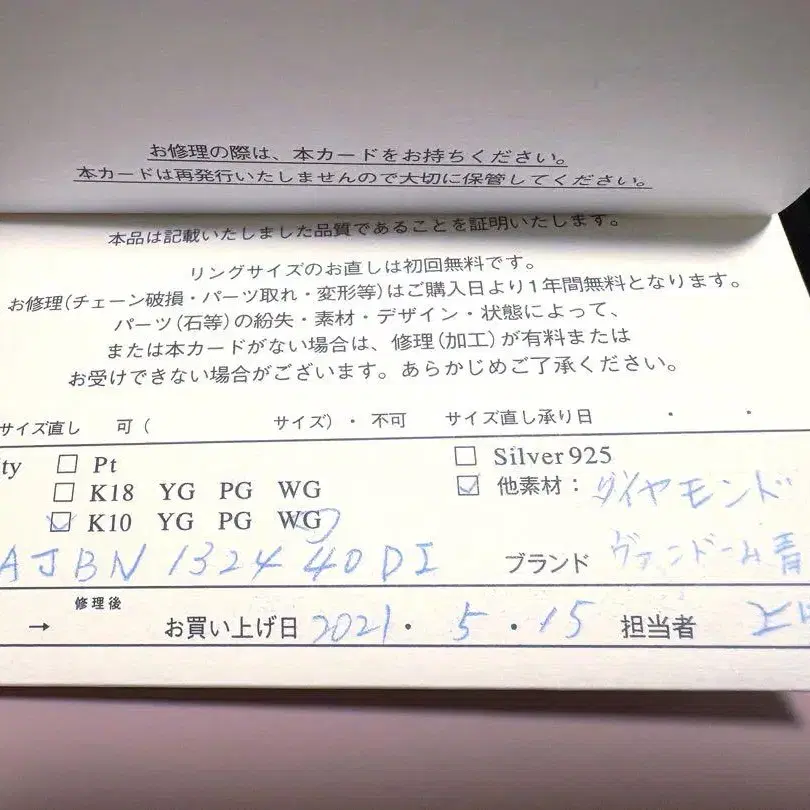 お修理の際は、本カードをお持ちください。
本カードは再発行いたしませんので大切に保管してください。
本品は記載いたしました品質であることを証明いたします。
リングサイズのお直しは初回無料です。
お修理(チェーン破損・パーツ取れ・変形等)はご購入日より1年間無料となります。
パーツ(石等)の紛失・素材・デザイン・状態によって、
または本カードがない場合は、修理(加工)が有料または
お受けできない場合がございます。あらかじめご了承ください。
サイズ直し 可( サイズ)・不可 サイズ直し承り日 ・ ・
ty □ Pt □ Silver925
□ K18 YG PG WG ☑ 他素材:ダイヤモンド
☑ K10 YG PG WG
AJBN 1324 40 DI ブランド ヴァンドーム青
修理後
→ お買い上げ日 2021・5・15 担当者